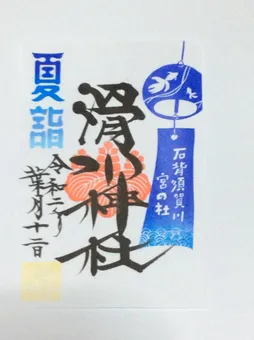 石背須賀川
宮の杜
滑川神社
夏詣
令和二年
葉月十二日